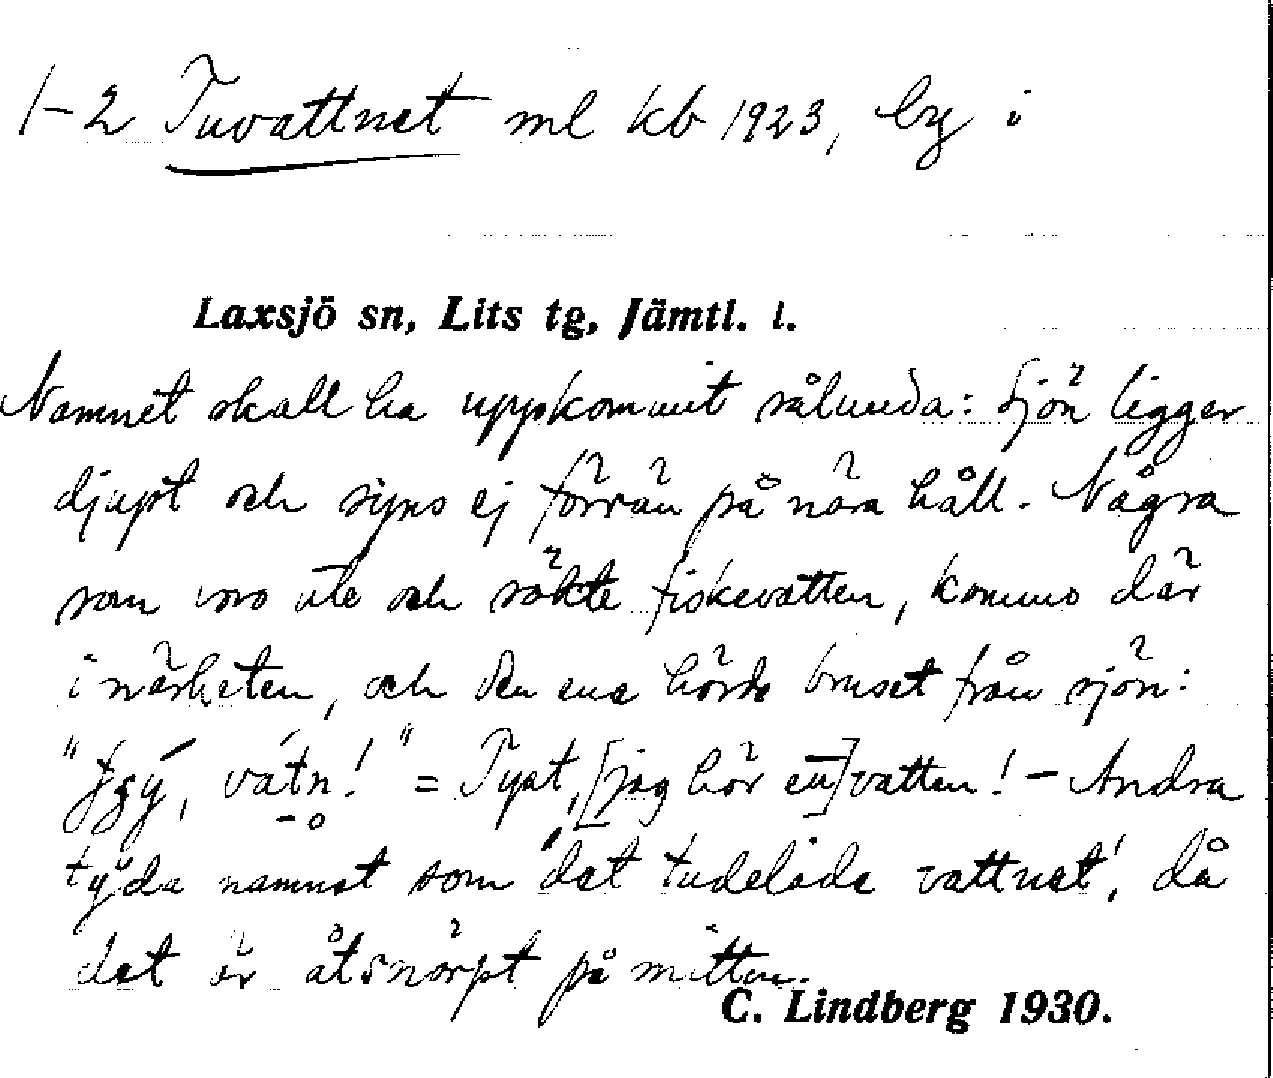 1-2 Tuvattnet ml kb 1923, by i
Laxsjö sn, Lits tg, Jämtl. l.
Namnet skall ha uppkommit sålunda: Sjön ligger
djupt och synes ej förrän på nära håll. Några
som voro ute och sökte fiskevatten, kommo där
i närheten, och den ene hörde bruset från sjön:
vátn!" = Tyst, [jag hör en] vatten! - Andra
tyda namnet som 'det tudelade vattnet', då
det är åtsnörpt på mitten.
C. Lindberg 1930.